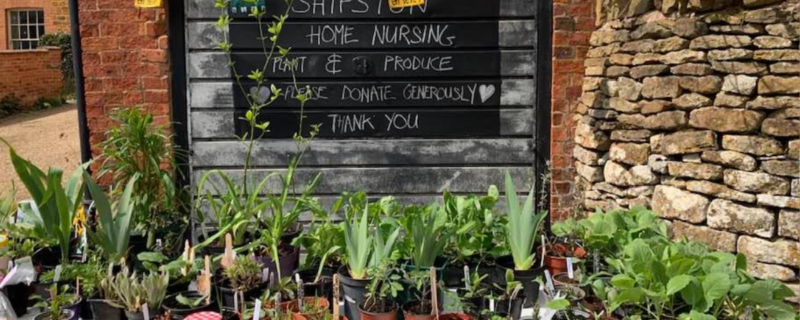 SHIPSTON
HOME NURSING
PLANT & PRODUCE
PLEASE DONATE GENEROUSLY
THANK YOU